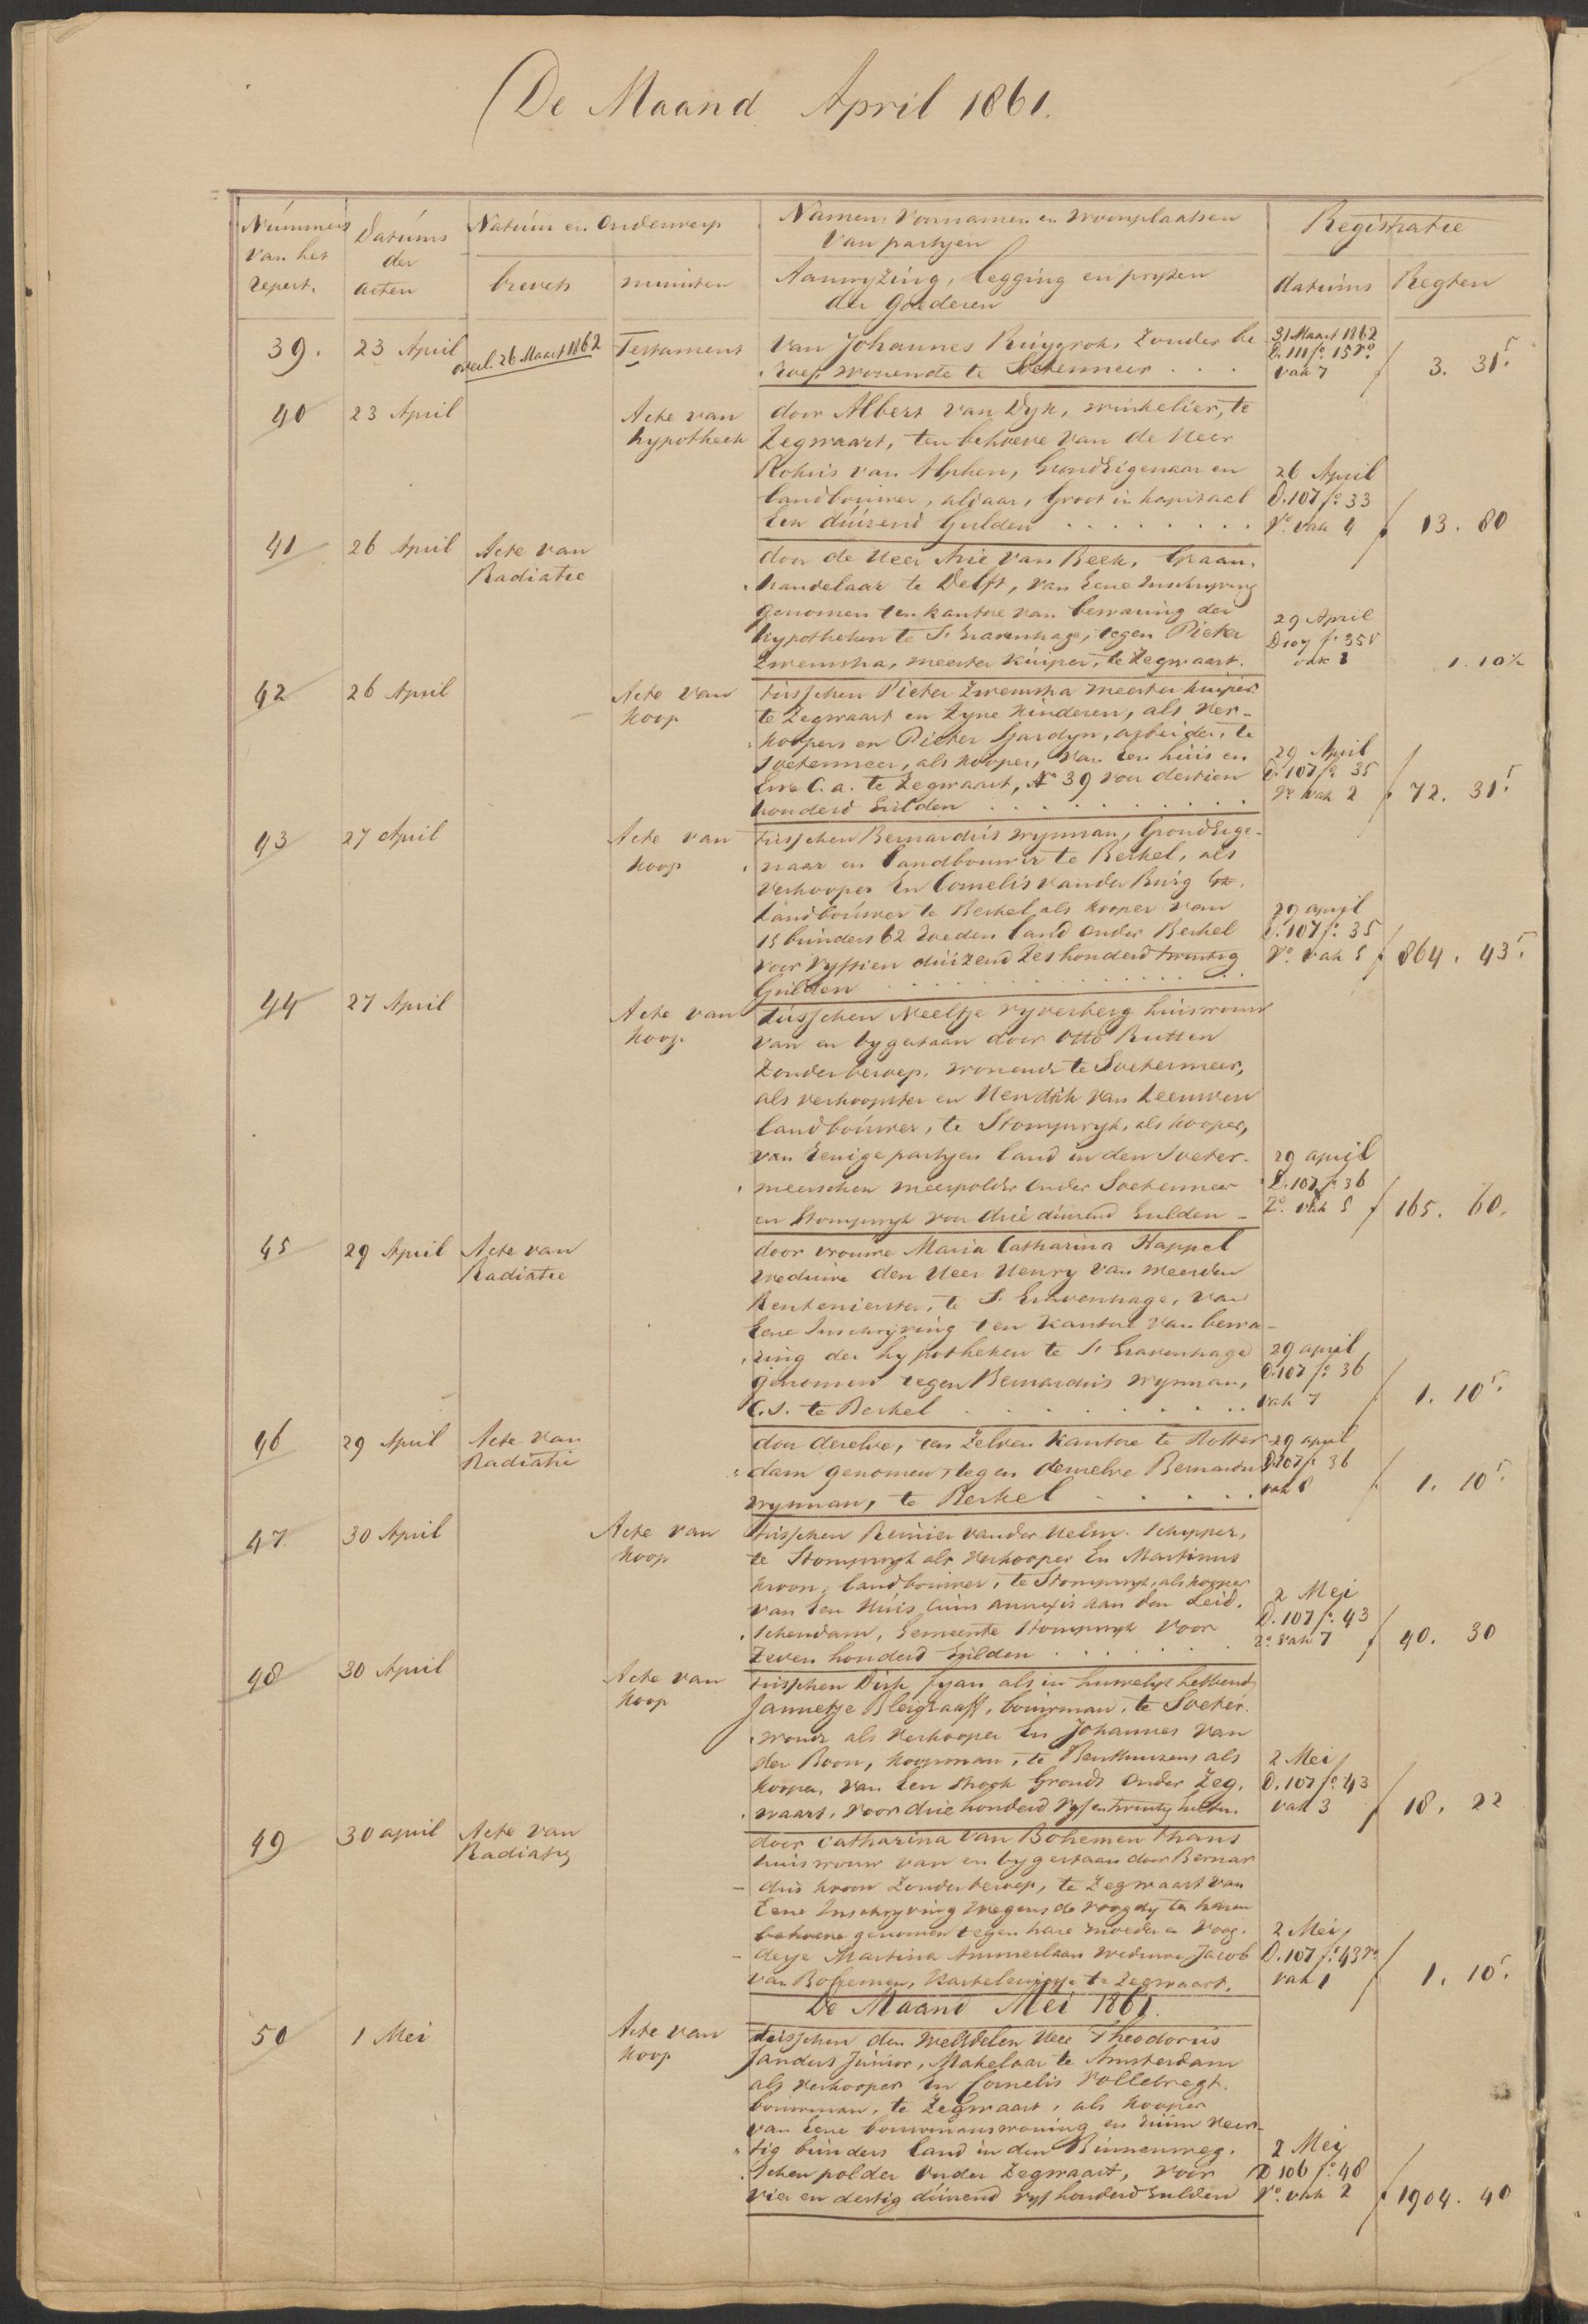 De Maand April 1861.
Nummers van het repert.
Datums der acten
Natuur en Onderwerp
brevets
minuten
Namen, Voornamen en woonplaatsen
van partyen
Aanwyzing, legging en pryzen
der goederen
Registratie
datums
Regten
39. 23 April overl. 26 Maart 1862 Testament van Johannes Ruygrok, Zonder be
roep wonende te Soetermeer . . .
31 Maart 1862
D. 111 fo. 15 Vo.
vak 7 f 3. 31⁵.
40 23 April Acte van door Albert van Dyk, winkelier, te
hypotheek Zegwaart, ten behoeve van de Heer
Rokus van Alphen, GrondEigenaar en
landbouwer, aldaar, Groot in kapitaal
Een duizend Gulden . . . . . . . .
26 April
D. 107 fo. 33
Vo. vak 4 f 13. 80
41 26 April Acte van door de Heer Arie van Beek, Graan,
Radiatie handelaar te Delft, van Eene Inschryving
genomen ten kantore van bewaring der
hypotheken te S. Gravenhage, tegen Pieter
Zwemstra, meester Kuiper, te Zegwaart.
29 April
D 107 fo. 35 V
vak 1 1. 10½
42 26 April Acte van tusschen Pieter Zwemstra meester kuiper
koop te Zegwaart en Zyne Kinderen, als Ver-
koopers en Pieter Sjardyn, arbeider, te
Soetermeer, als kooper, van Een huis en
Erve C. a. te Zegwaart, No 39 voor dertien
honderd Gulden . . . . . . . . . .
29 April
D. 107 fo. 35
Vo vak 2 f 72. 31⁵.
43 27 April Acte van tusschen Bernardus Wynman, GrondEige-
koop naar en landbouwer te Berkel, als
Verkooper En Cornelis van der Burg
landbouwer te Berkel als kooper van
15 bunders 62 roeden land onder Berkel
voor Vyftien duizend Zes honderd twintig
Gulden . . . . . . . . . . . .
29 april
D. 107 fo. 35
Vo. vak 5 f 864. 43⁵.
44 27 April Acte van tusschen Neeltje Vyverberg huisvrouw
koop van en bygestaan door Otto Rutten
Zonder beroep, wonende te Soetermeer,
als verkoopster en Hendrik van Leeuwen
landbouwer, te Stompwyk, als kooper,
van Eenige partyen land in den Soeter-
meerschen meerpolder onder Soetermeer
en Stompwyk voor drie duizend Gulden -
29 april
D. 107 fo. 36
vak 5 f 165. 60.
45 29 April Acte van door vrouwe Maria Catharina Kappel
Radiatie Weduwe den Heer Henry van Meerten
Rentenierster, te S. Gravenhage, van
Eene Inschryving ten Kantore van bewa-
ring der hypotheken te S. Gravenhage
genomen tegen Bernardus Wynman,
C.S. te Berkel . . . . . . . .
29 april
D. 107 fo. 36
vak 7 f 1. 10⁵.
46 29 April Acte van door dezelve, ten Zelven kantore te Rotter-
Radiatie dam genomen, tegen denzelve Bernardus
Wynman, te Berkel . . . . .
29 april
D. 107 fo. 36
vak 8 f 1. 10⁵.
47. 30 April Acte van tusschen Reinier van der Helm. Schipper,
koop te Stompwyk als Verkooper En Martinus
Kroon, landbouwer, te Stompwyk, als kooper
van Een Huis cum annexis aan den Leid.
schendam, Gemeente Stompwyk voor
Zeven honderd Gulden . . . . .
2 Mei
D. 107 fo. 43
vak 7 f 40. 30
48 30 April Acte van tusschen Dirk Jan als in huwelyk hebbende
koop Jannetje Bleigraaff, bouwman, te Soeter.
woude als Verkooper En Johannes van
der Boon, koopman, te Benthuizen als
kooper, van Een Strook Gronds onder Zeg.
waart, voor driehonderd Vyfentwintig Gulden.
2 Mei
D. 107 fo. 43
vak 3 f 18. 22
49 30 april Acte van door Catharina van Bohemen thans
Radiatie huisvrouw van en bygestaan door Bernar
dus Kroon Zonder beroep, te Zegwaart van
Eene Inschryving wegens de voogdy ten haren
behoeve genomen tegen hare moeder en Voog.
desse Martina Ammerlaan Weduwe Jacob
van Bohemen, Kasteleinesse te Zegwaart.
2 Mei
D. 107 fo. 43 Vo
vak 1 f 1. 10⁵.
De Maand Mei 1861.
50 1 Mei Acte van tusschen den WelEdelen Heer Theodorus
koop Sanders Junior, Makelaar te Amsterdam
als Verkooper En Cornelis Vollebregt.
bouwman, te Zegwaart, als kooper
van Eene bouwmanswoning en ruim veer-
tig bunders land in den Binnenweg.
schen polder onder Zegwaart, voor
vier en dertig duizend vyf honderd Gulden
2 Mei
D 106 fo. 48
Vo. vak 2 f 1904. 40